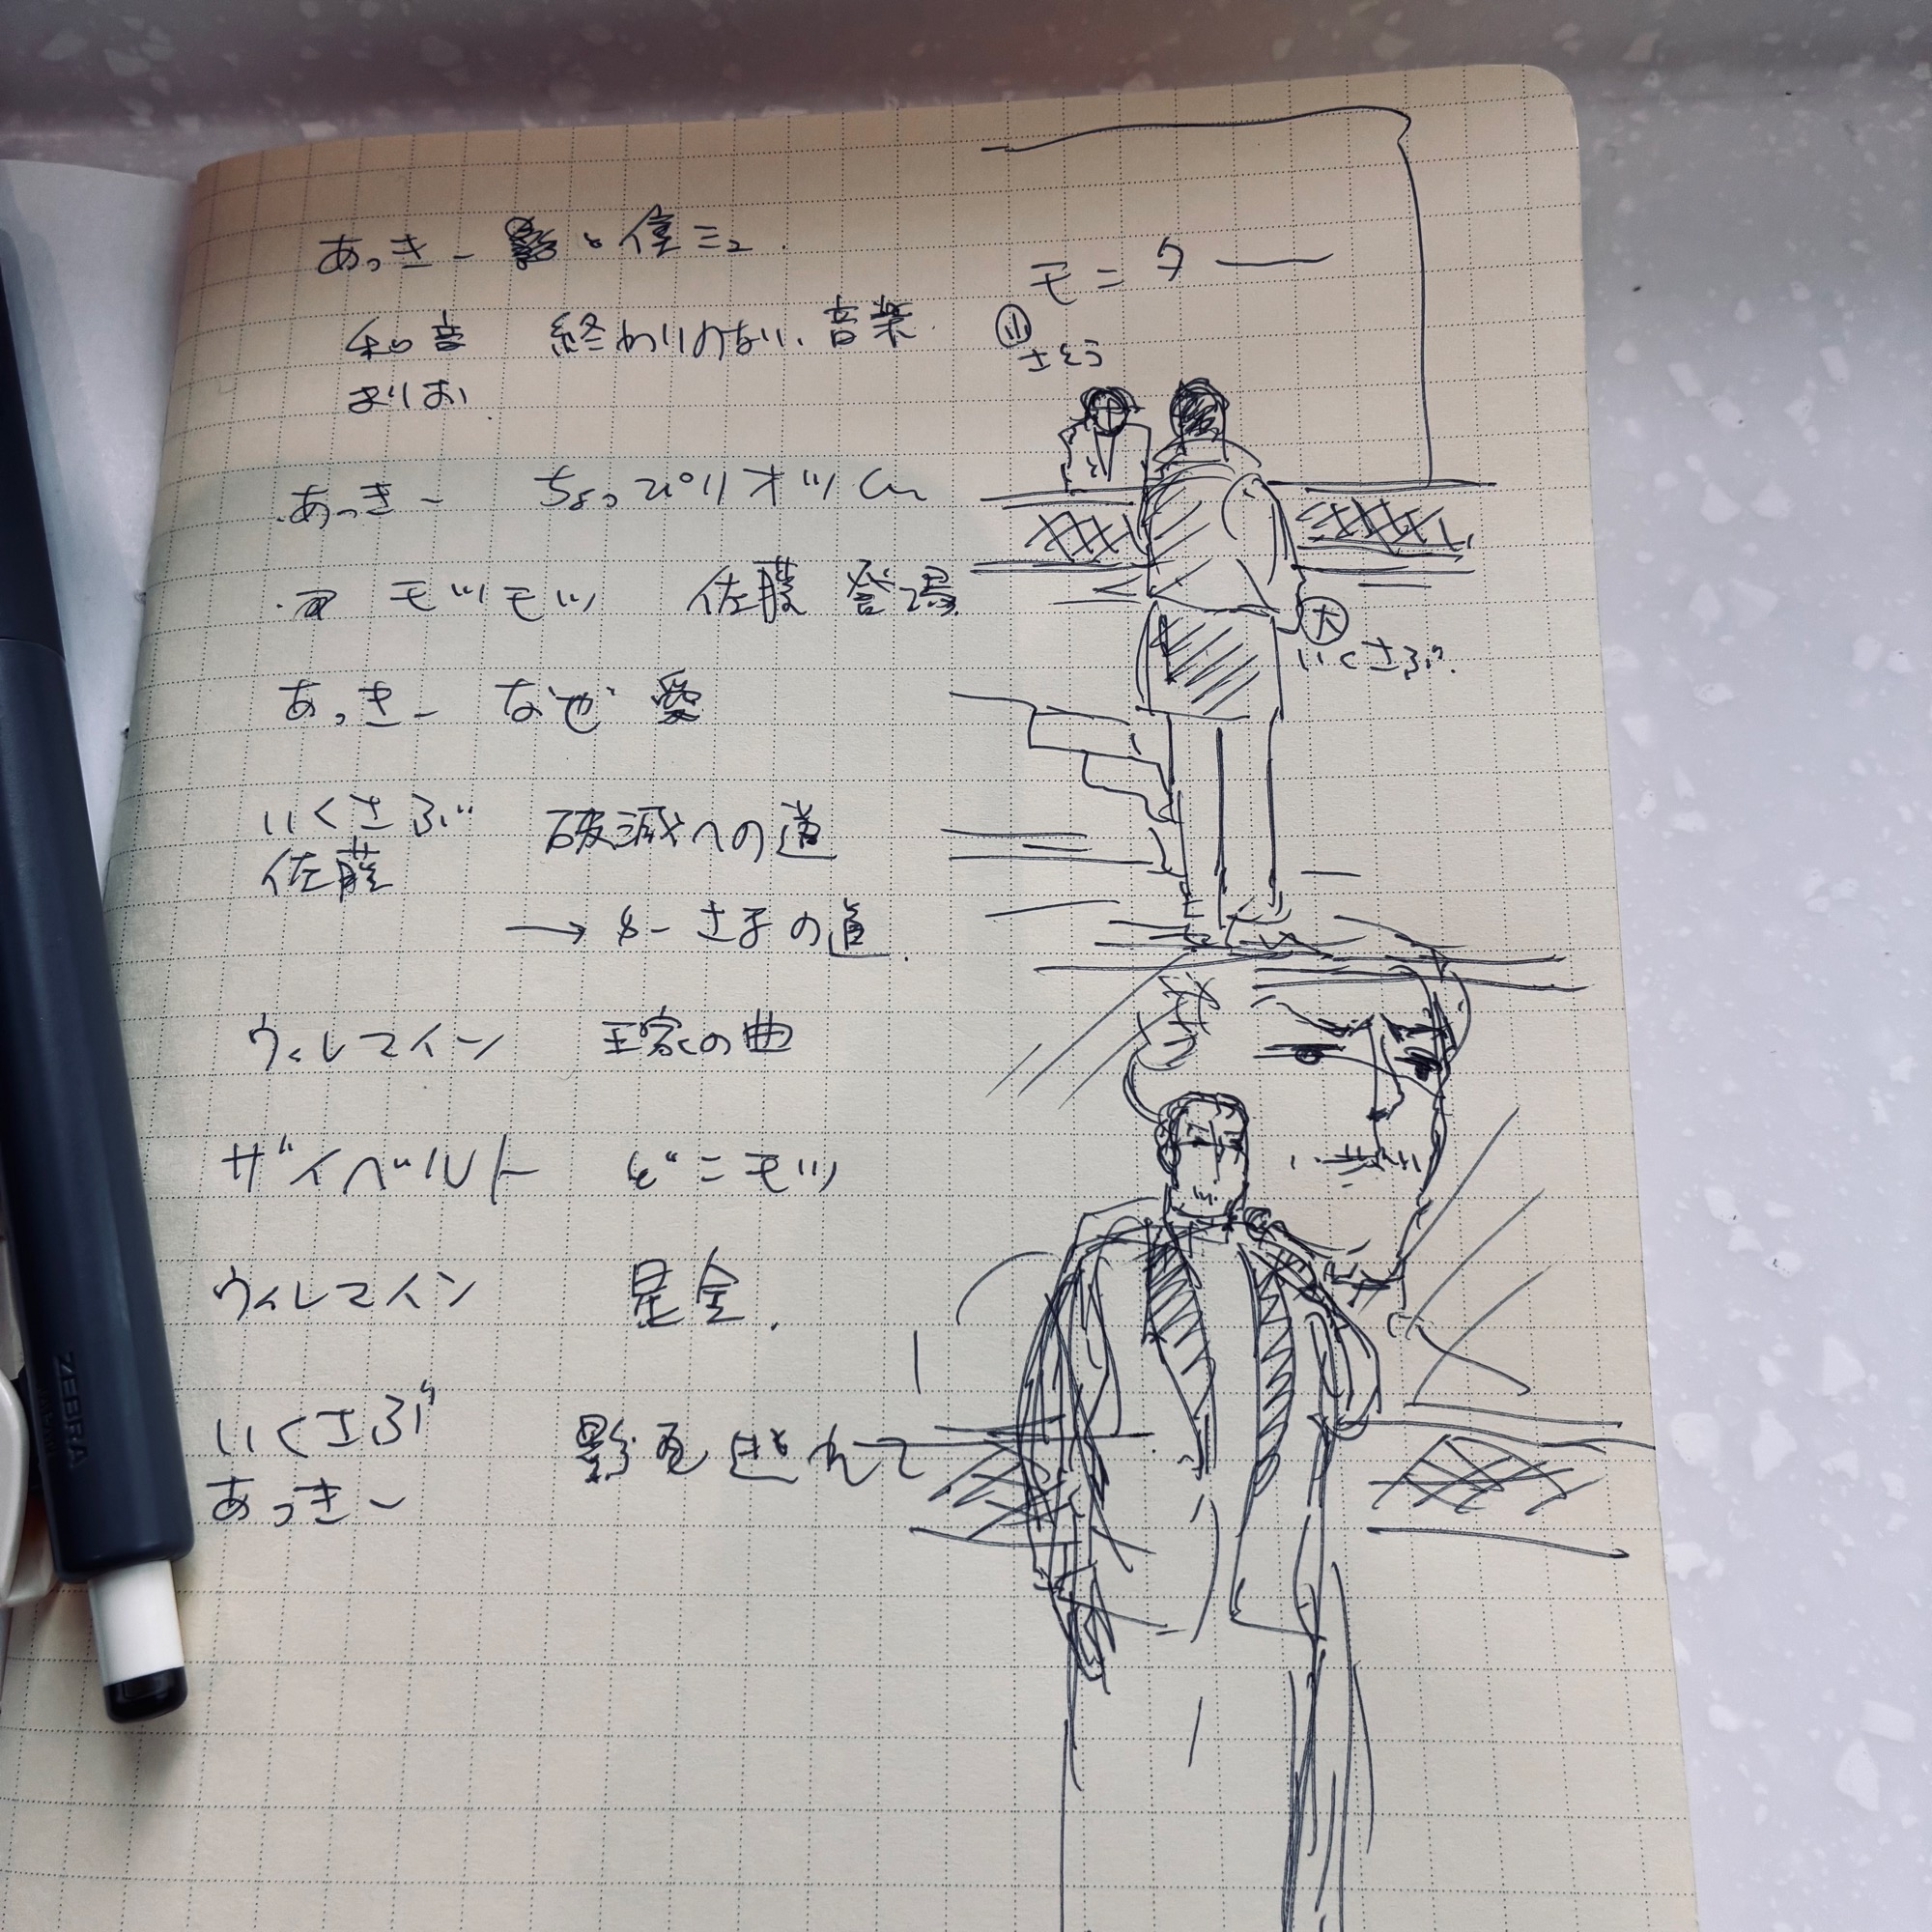 あっきー 影 と 侄ミュ.
和音 終わりのない音楽
まりお.
あっきー ちょっぴりオツム
モツモツ 佐藤 登場.
あっきー なぜ 愛
いくさぶ 破滅への道
佐藤
→ さまの道.
ウィレマイン 王家の曲
ザイベルト ど ニモツ
ウィレマイン 星金.
いくさぶ 影を逃れて
あっきー
モニター
小
さとう
大
いくさぶ.
ZEBRA